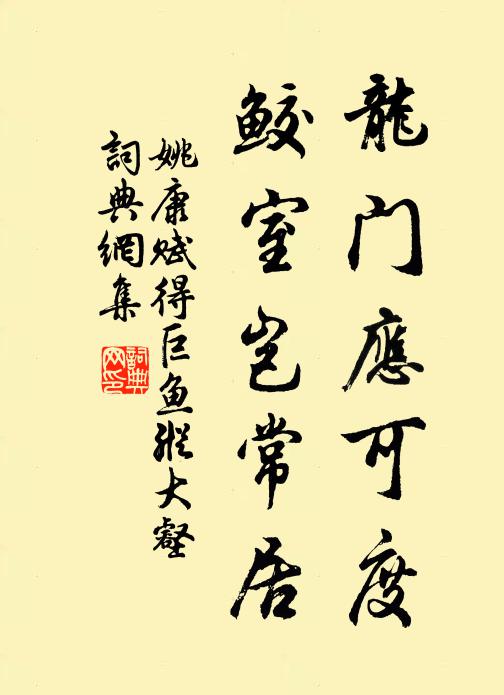 龍门應可度
鮫室岂常居
姚康赋得巨鱼縱大壑
詞典網集
詞典网印